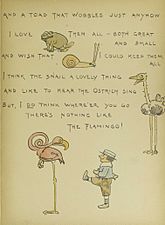 AND A TOAD THAT WOBBLES JUST ANYHOW
I LOVE THEM ALL - BOTH GREAT
AND SMALL
AND WISH THAT I COULD KEEP THEM
ALL
I THINK THE SNAIL A LOVELY THING
AND LIKE TO HEAR THE OSTRICH SING
BUT, I DO THINK WHERE'ER YOU GO
THERE'S NOTHING LIKE
THE FLAMINGO!